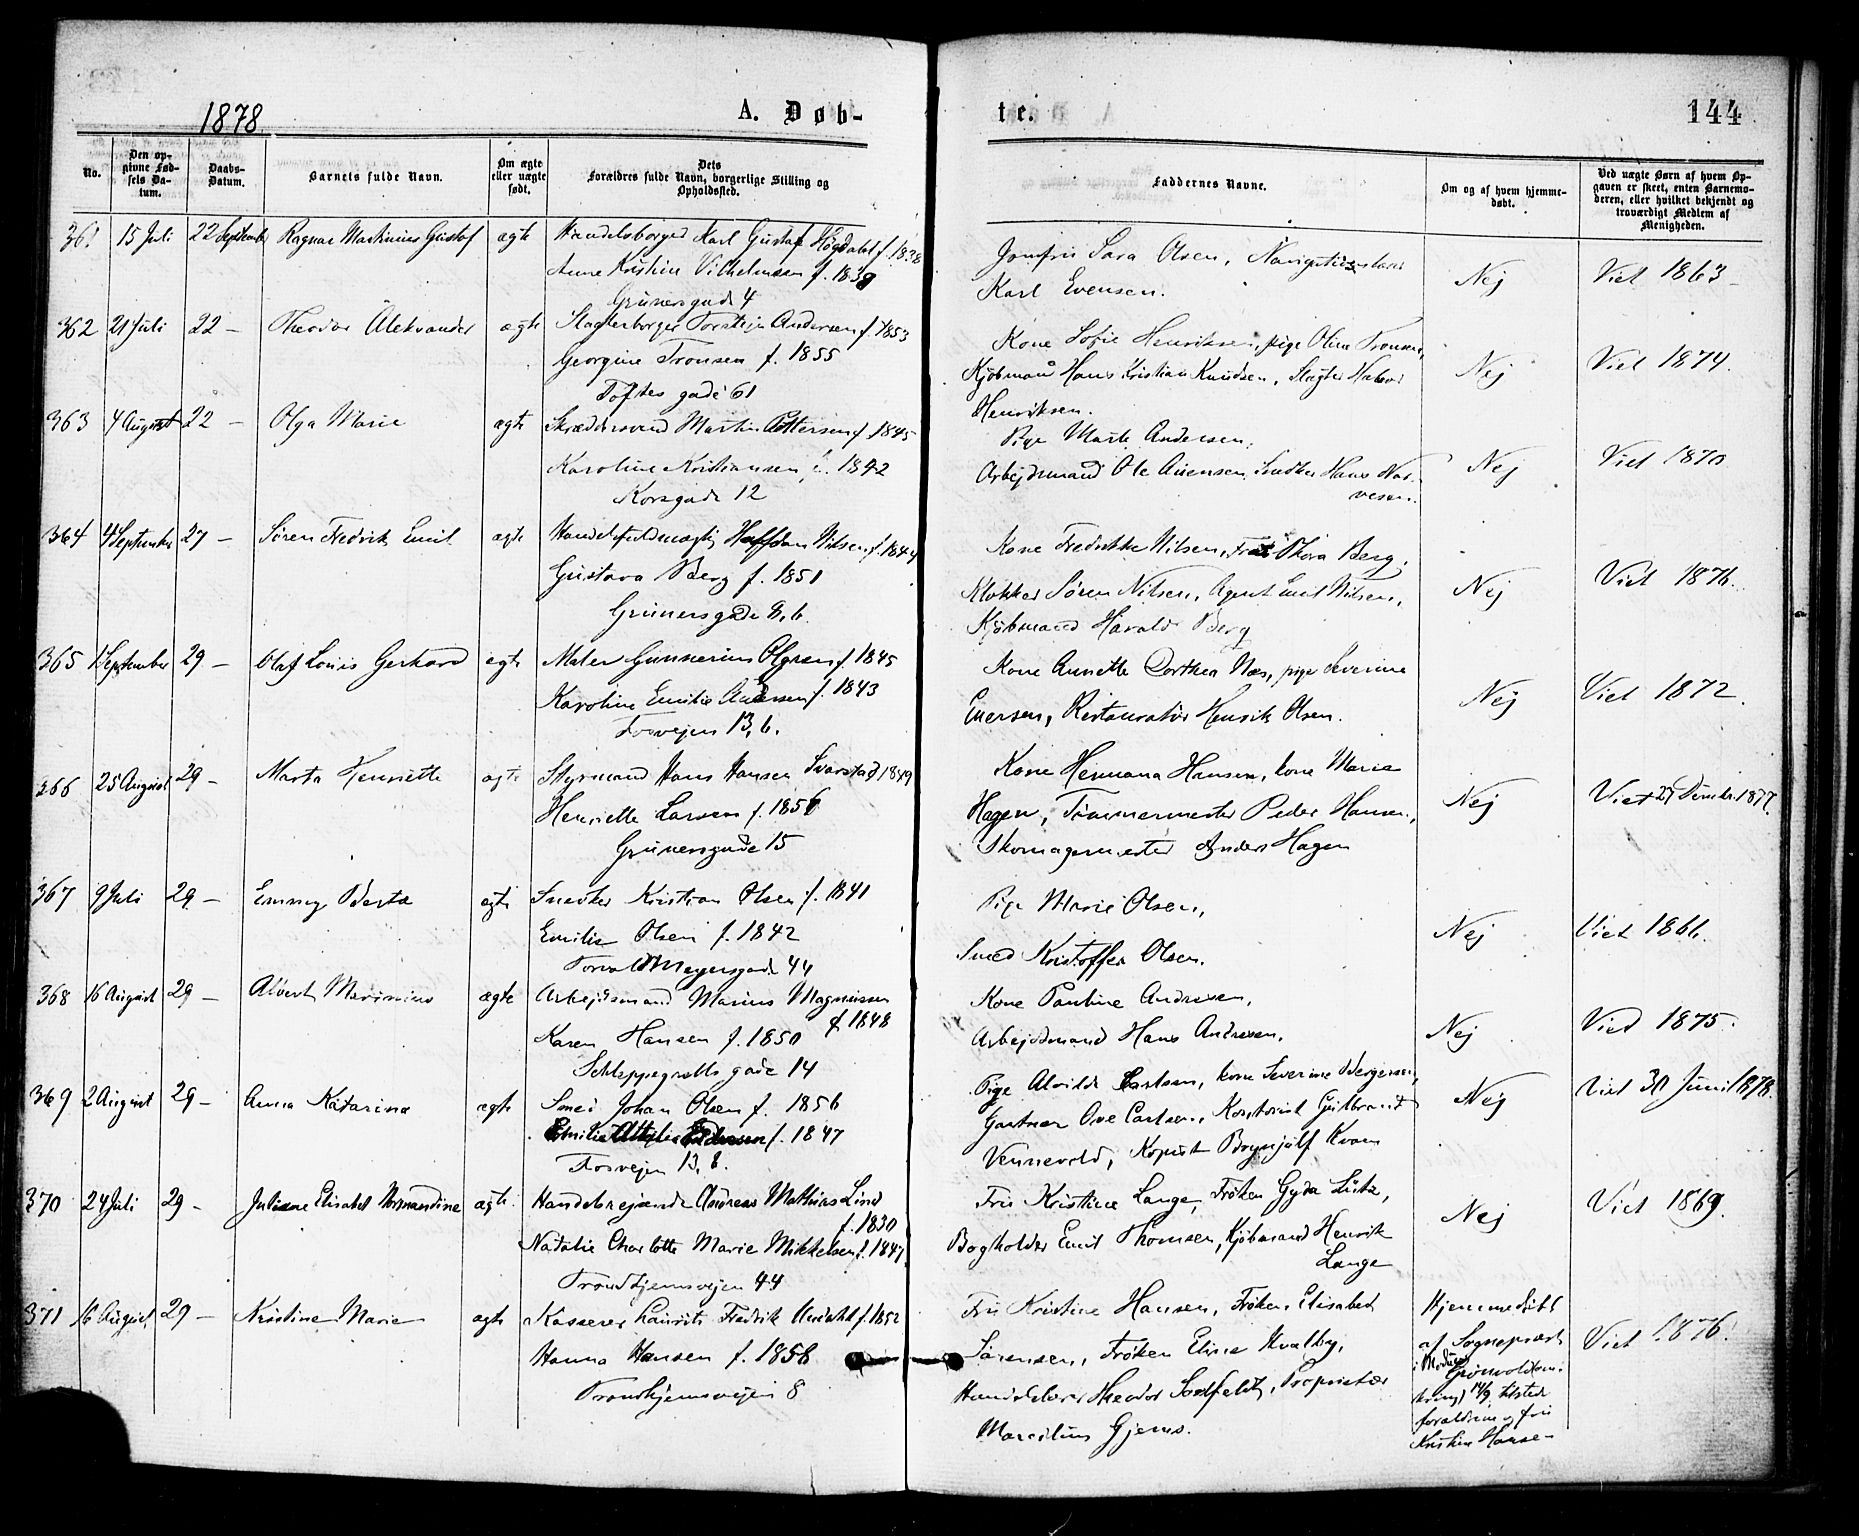 1878
A. Døb-
te.
144
No.
Den op-
givne Fød-
sels Da-
tum.
Daabs-
Datum.
Barnets fulde Navn.
Om ægte
eller uægte
født.
Dets
Forældres fulde Navn, borgerlige Stilling og
Opholdssted.
Faddernes Navne.
Om og af hvem hjemme-
døbt.
Ved uægte Børn af hvem Op-
gaven er skeet, enten Barnemo-
deren, eller hvilket bekjendt og
troværdigt Medlem af
Menigheden.
361 15 Juli 22 September Ragnar Martinius Gustaf ægte Handelsborger Karl Gustaf Høgdahl f. 1838
Anne Kristine Vilhelmsen f. 1839
Grünersgade 4
Jomfru Sara Olsen,
Karl Evensen.
Nej
Viet 1863
362 21 Juli 22 — Theodor Aleksander ægte Slagterborger Torstein Andersen f. 1853
Georgine Tronsen f. 1855
Toftes gade 61
Kone Sofie Henriksen, pige Oline Tronsen,
Kjøbmand Hans Kristian Knudsen, Slagter Halvor
Henriksen.
Nej
Viet 1874.
363 4 August 22 — Olga Marie ægte Skræddersvend Martin Pettersen f. 1845
Karoline Kristiansen, f. 1842
Korsgade 12
Pige Marte Andersen,
Arbejdsmand Ole Evensen, Snedker Hans
Nej
Viet 1870
364 4 September 27 — Søren Fredrik Emil ægte Handelsfuldmægtig Halfdan Nilsen f. 1844
Gustava Berg f. 1851
Grünersgade 8,6.
Kone Fredrikke Nilsen, Thora Berg,
Klokker Søren Nilsen, Agent Emil Nilsen,
Kjøbmand Harald Berg
Nej
Viet 1876.
365 1 September 29 — Olaf Louis Gerhard ægte Maler Gunnerius Olsen f. 1845
Karoline Emilie Andersen f. 1843
Fosvejen 13,6.
Kone Annette Dorthea Næs, pige Severine
Evensen, Restauratør Henrik Olsen.
Nej
Viet 1872.
366 25 August 29 — Marta Henriette ægte Styrmand Hans Hansen Svarstad 1849
Henriette Larsen f. 1856
Grünersgade 15
Kone Hermana Hansen, kone Marie
Hagen, Tømmermester Peder Hansen,
Skomagermester Anders Hagen
Nej
Viet 27 1877.
367 9 Juli 29 — Emmy Berta ægte Snedker Kristian Olsen f. 1841
Emilie Olsen f. 1842
Torvald Meyersgade 44
Pige Marie Olsen,
Smed Kristoffer Olsen.
Nej
Viet 1866.
368 16 August 29 — Albert Marinius ægte Arbejdsmand Marius Magnussen
f. 1848
Karen Hansen f. 1850
Schleppegrells gade 14
Kone Pauline Andresen,
Arbejdsmand Hans Andresen.
Nej
Viet 1875.
369 2 August 29 — Anna Katarina ægte Smed Johan Olsen f. 1856
Emilie f. 1847
Fosvejen 13,8.
Pige Alvilde Carlsen, kone Severine Bergersen,
Gartner Ove Carlsen, Kontorist Gulbrand
Vennevold, Kopist Brynjulf Kvam
Nej
Viet 30 Juni 1878.
370 24 Juli 29 — Juliane Elisabet Normandine ægte Handelsrejsende Andreas Mathias Lind
f. 1830
Natalie Charlotte Marie Mikkelsen f. 1847.
Trondhjemsvejen 44
Fru Kristine Lange, Frøken Gyda Lütz,
Bogholder Emil Thomsen, Kjøbmand Henrik
Lange
Nej
Viet 1869.
371 16 August 29 — Kristine Marie ægte Kasserer Laurits Fredrik f. 1852
Hanna Hansen f. 1856
Trondhjemsvejen 8
Fru Kristine Hansen, Frøken Elisabet
Sørensen, Frøken Elise Kvalby,
Theodor, Proprietær
Marcelius Gjems.
Hjemmedøbt
af Sogneprest
i Modum
tilstede
forældrene og fru
Kristine Hansen
Viet 1876.